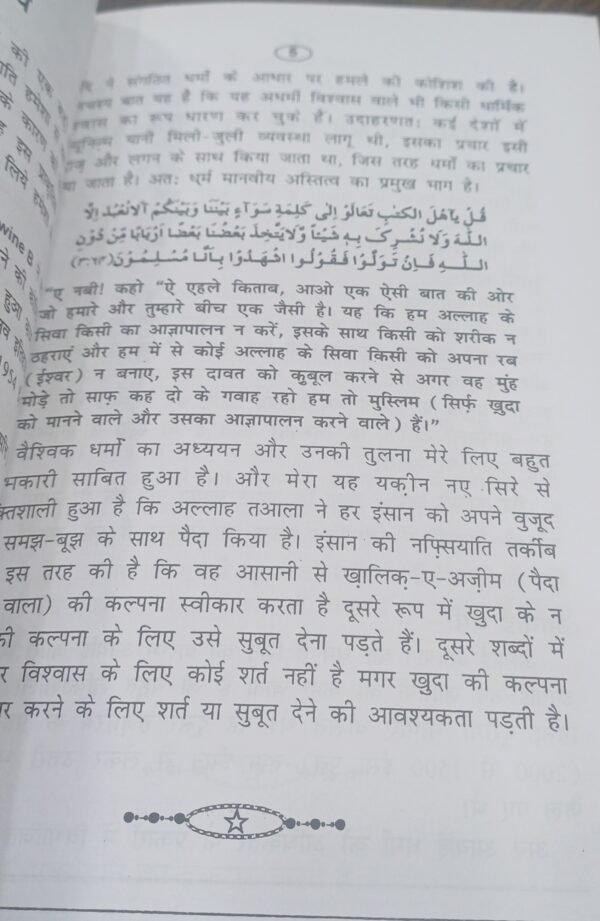 6
ने संगठित धर्मों के आधार पर हमले की कोशिश की है।
बात यह है कि यह अधर्मी विश्वास वाले भी किसी धार्मिक
का रूप धारण कर चुके हैं। उदाहरणतः कई देशों में
यानी मिली-जुली व्यवस्था लागू थी, इसका प्रचार इसी
और लगन के साथ किया जाता था, जिस तरह धर्मों का प्रचार
या जाता है। अतः धर्म मानवीय अस्तित्व का प्रमुख भाग है।
قُلْ يٰاَهْلَ الْكِتٰبِ تَعَالَوْ اِلٰى كَلِمَةٍ سَوَآءٍ بَيْنَنَا وَبَيْنَكُمْ اَلَّانَعْبُدَ اِلَّا
اللّٰهَ وَلَا نُشْرِكَ بِهٖ شَيْئًا وَّلَايَتَّخِذَ بَعْضُنَا بَعْضًا اَرْبَابًا مِّنْ دُوْنِ
اللّٰهِ فَاِنْ تَوَلَّوْا فَقُوْلُوا اشْهَدُوْا بِاَنَّا مُسْلِمُوْنَ(٣:٦٣)
"ए नबी! कहो "ऐ एहले किताब, आओ एक ऐसी बात की ओर
जो हमारे और तुम्हारे बीच एक जैसी है। यह कि हम अल्लाह के
सिवा किसी का आज्ञापालन न करें, इसके साथ किसी को शरीक न
ठहराएं और हम में से कोई अल्लाह के सिवा किसी को अपना रब
(ईश्वर) न बनाए, इस दावत को क़ुबूल करने से अगर वह मुंह
मोड़े तो साफ़ कह दो के गवाह रहो हम तो मुस्लिम (सिर्फ़ ख़ुदा
को मानने वाले और उसका आज्ञापालन करने वाले) हैं।"
वैश्विक धर्मों का अध्ययन और उनकी तुलना मेरे लिए बहुत
भकारी साबित हुआ है। और मेरा यह यक़ीन नए सिरे से
क्तिशाली हुआ है कि अल्लाह तआला ने हर इंसान को अपने वुजूद
समझ-बूझ के साथ पैदा किया है। इंसान की नफ़्सियाति तर्कीब
इस तरह की है कि वह आसानी से ख़ालिक़-ए-अज़ीम (पैदा
वाला) की कल्पना स्वीकार करता है दूसरे रूप में ख़ुदा के न
की कल्पना के लिए उसे सुबूत देना पड़ते हैं। दूसरे शब्दों में
र विश्वास के लिए कोई शर्त नहीं है मगर ख़ुदा की कल्पना
र करने के लिए शर्त या सुबूत देने की आवश्यकता पड़ती है।